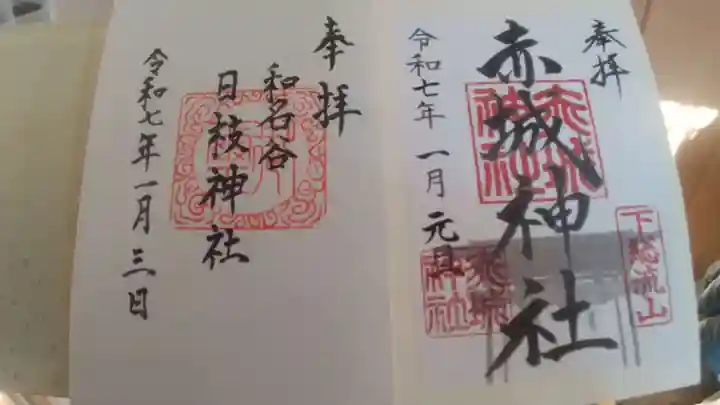 奉拝
赤城神社
令和七年 一月 元旦
下総流山
赤城神社
奉拝
和名谷
日枝神社
令和七年一月三日